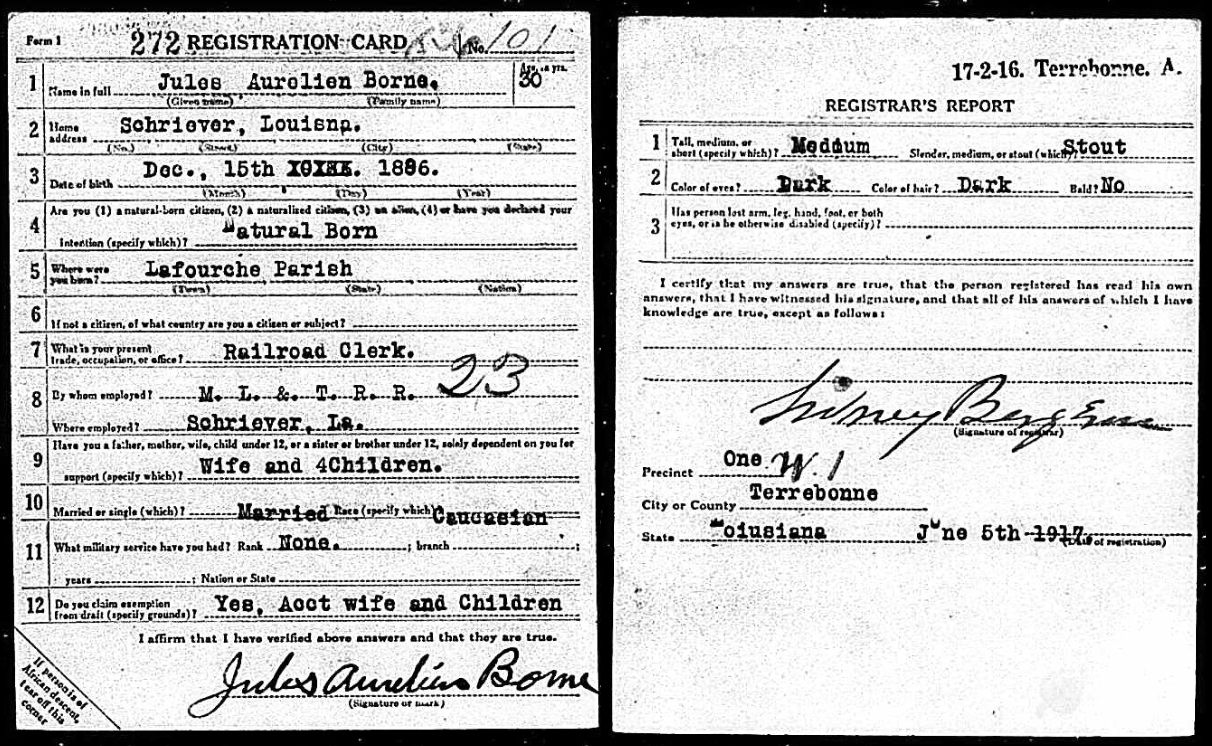 Form 1
272 REGISTRATION CARD No. 101
1 Name in full Jules Aurelien Borne. Age, in yrs. 30
(Given name) (Family name)
2 Home address Schriever, Louisna.
(No.) (Street) (City) (State)
3 Date of birth Dec., 15th 1886.
(Month) (Day) (Year)
4 Are you (1) a natural-born citizen, (2) a naturalized citizen, (3) an alien, (4) or have you declared your
intention (specify which)? Natural Born
5 Where were you born? Lafourche Parish
(Town) (State) (Nation)
6 If not a citizen, of what country are you a citizen or subject?
7 What is your present trade, occupation, or office? Railroad Clerk.
23
8 By whom employed? M. L. &. T. R. R.
Where employed? Schriever, La.
9 Have you a father, mother, wife, child under 12, or a sister or brother under 12, solely dependent on you for
support (specify which)? Wife and 4Children.
10 Married or single (which)? Married Race (specify which)? Caucasian
11 What military service have you had? Rank None. ; branch ;
years ; Nation or State
12 Do you claim exemption from draft (specify grounds)? Yes, Acct wife and Children
I affirm that I have verified above answers and that they are true.
Jules Aurelien Borne
(Signature or mark)
If person is of
African descent,
tear off this
corner
17-2-16. Terrebonne. A.
REGISTRAR'S REPORT
1 Tall, medium, or short (specify which)? Meddum Slender, medium, or stout (which)? Stout
2 Color of eyes? Dark Color of hair? Dark Bald? No
3 Has person lost arm, leg, hand, foot, or both
eyes, or is he otherwise disabled (specify)?
I certify that my answers are true, that the person registered has read his own
answers, that I have witnessed his signature, and that all of his answers of which I have
knowledge are true, except as follows:
Sidney
(Signature of registrar)
Precinct One W. 1
City or County Terrebonne
State Loiusiana June 5th 1917.
(Date of registration)